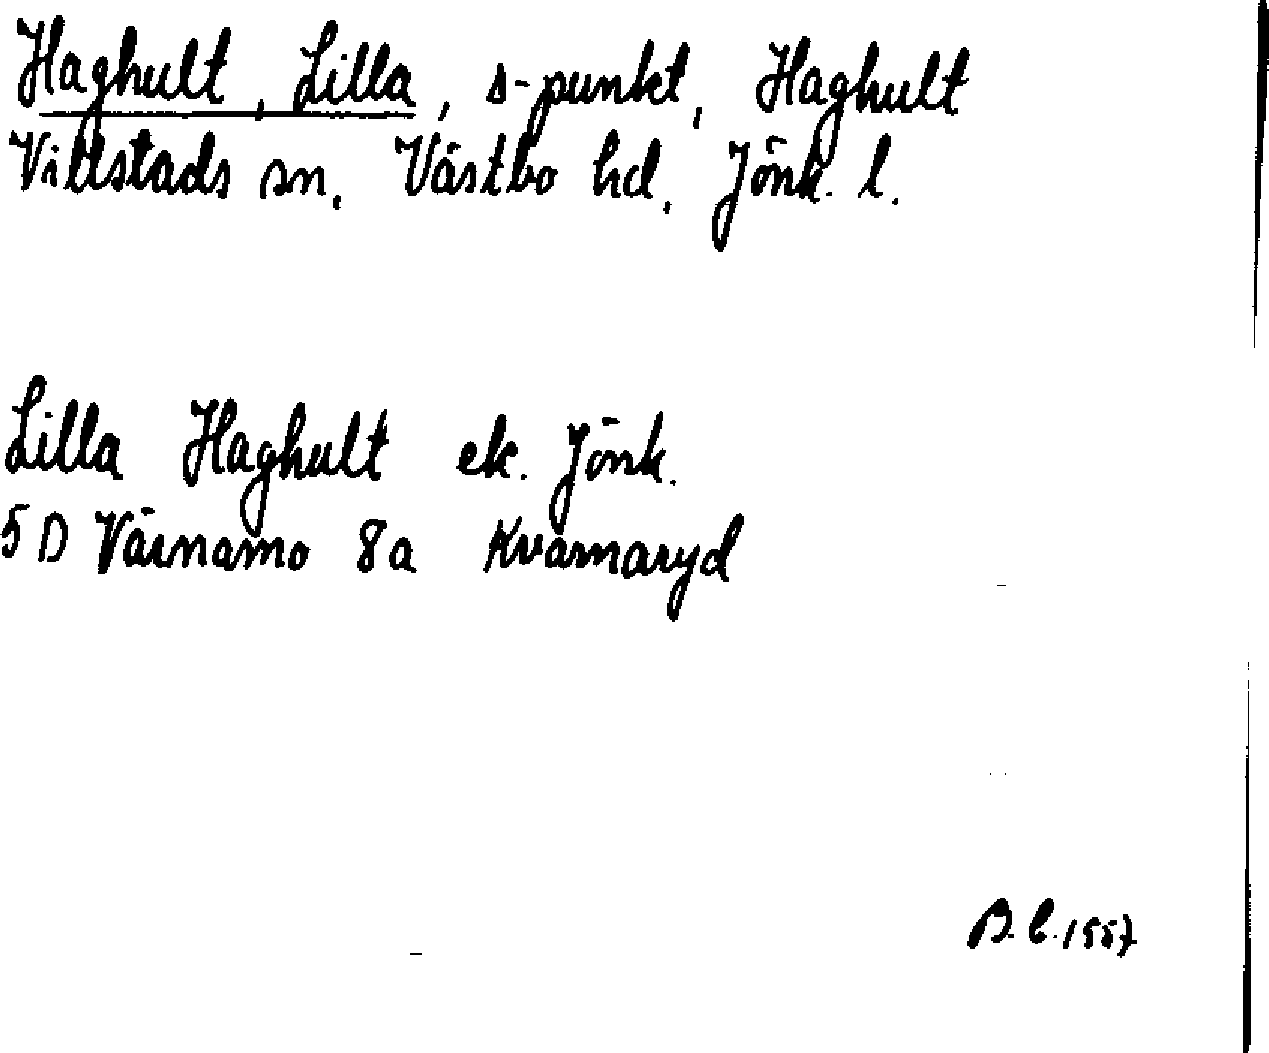 Haghult, Lilla, s-punkt, Haghult
Villstads sn, Västbo hd, Jönk. l.
Lilla Haghult ek. Jönk.
5 D Värnamo 8a Kvarnaryd
1557